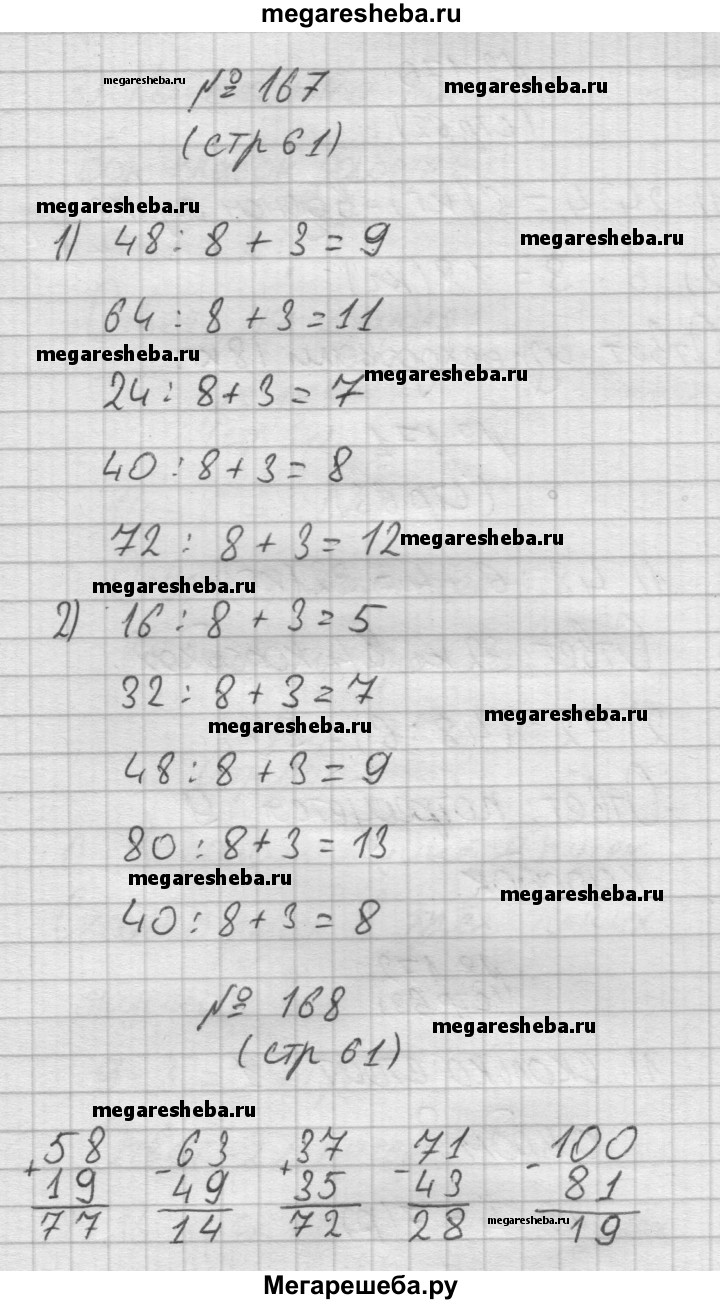 megaresheba.ru
megaresheba.ru № 167 megaresheba.ru
(стр 61)
megaresheba.ru
1) 48 : 8 + 3 = 9 megaresheba.ru
64 : 8 + 3 = 11
megaresheba.ru
24 : 8 + 3 = 7 megaresheba.ru
40 : 8 + 3 = 8
72 : 8 + 3 = 12 megaresheba.ru
megaresheba.ru
2) 16 : 8 + 3 = 5
32 : 8 + 3 = 7
megaresheba.ru megaresheba.ru
48 : 8 + 3 = 9
80 : 8 + 3 = 13
megaresheba.ru megaresheba.ru
40 : 8 + 3 = 8
№ 168
megaresheba.ru
(стр 61)
megaresheba.ru
+ 58 - 63 + 37 - 71 - 100
19 49 35 43 81
77 14 72 28 megaresheba.ru 19
Мегарешеба.ру